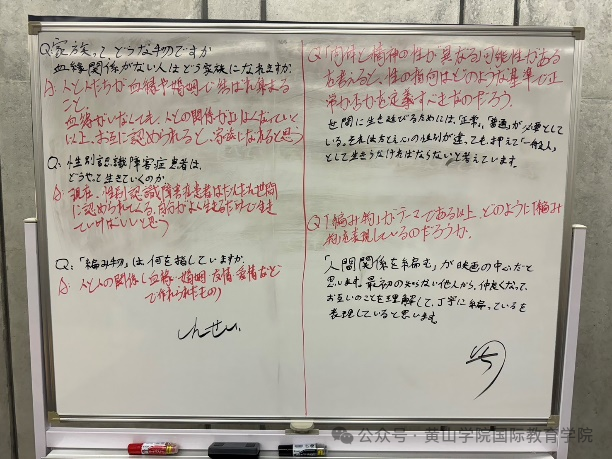 Q:家族ってどうなものですか
血縁関係がない人はどう家族になれますか
A:人と人たちが血縁や婚姻で結ばれ集まる
こと。
血縁がいなくても、人との関係がよくなっていく
以上、お互に認められると、家族になれると思う
Q:性別認識障害症患者は、
どうやって生きていくのか
A:現在、性別認識障害の患者はだんだん世間
に認められてくる、自分がよく生きるだけで生き
ていけばいいと思う
Q:「編み物」は何を指していますか
A:人と人の関係(血縁・婚姻 友情 愛情など
で作れられたもの)
Q「肉体と精神の性が異なる可能性がある
を考えると、性の指向はどのような基準で正
常か否かを定義すべきなのだろう。
世間に生き延びるためには、「正常」、「普通」が必要として
いる。それはたとえ心の性別が違っても、押えて「一般人」
として生きつなければならないと考えています。
Q「「編み物」がテーマである以上、どのように「編み
物」を表現しているのだろうか。
「人間関係を編む」が映画の中心だと
思います。最初の知らない他人から、仲良くなって、
お互いのことを理解して、丁寧に編っているを
表現していると思います。
公众号·黄山学院国际教育学院